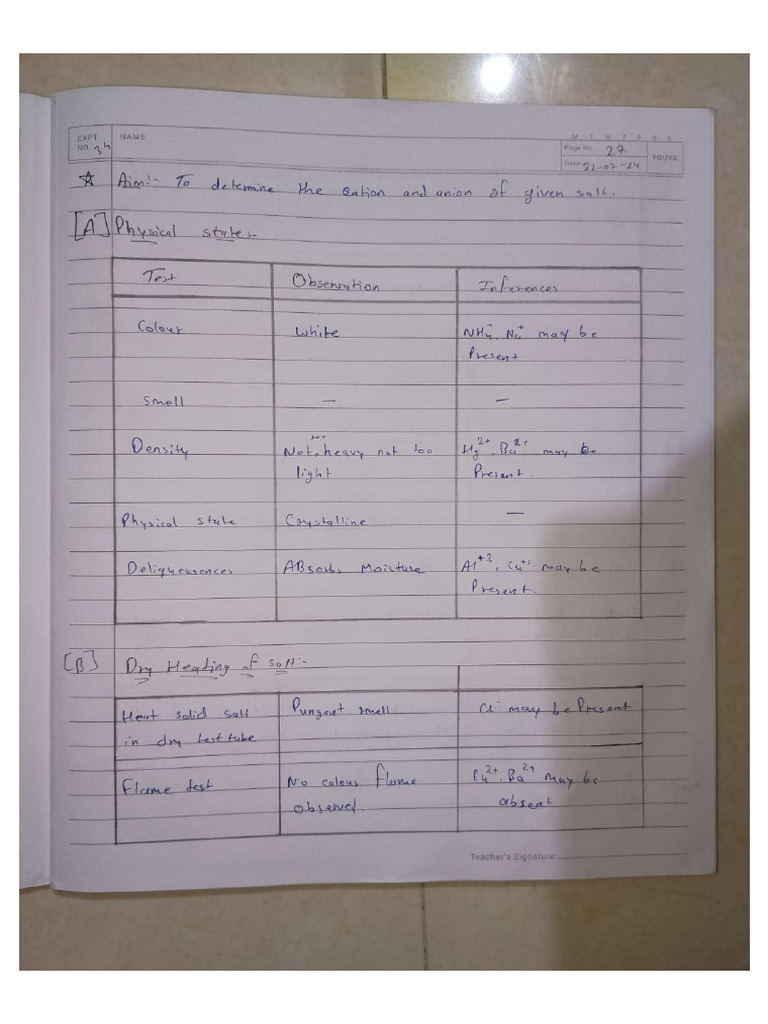 EXPT. NO. 34 NAME
M T W T F S S
Page No. 27
Date: 22-07-24
YOUVA
☆ Aim:- To determine the cation and anion of given salt.
[A] Physical state:-
Test Observation Inferences
Colour White NH4⁻, Na⁺ may be
Present
Smell — —
Density Not too heavy not too Mg²⁺, Ba²⁺ may be
light Present.
Physical state Crystalline —
Deliqueasences ABsorbs Moisture Al⁺³, Cu⁺² may be
Present.
[B] Dry Heating of salt:-
Heat solid salt Pungent smell Cl⁻ may be Present
in dry test tube
Flame test No colour flame Cu²⁺, Ba²⁺ may be
observed. absent
Teacher's Signature: